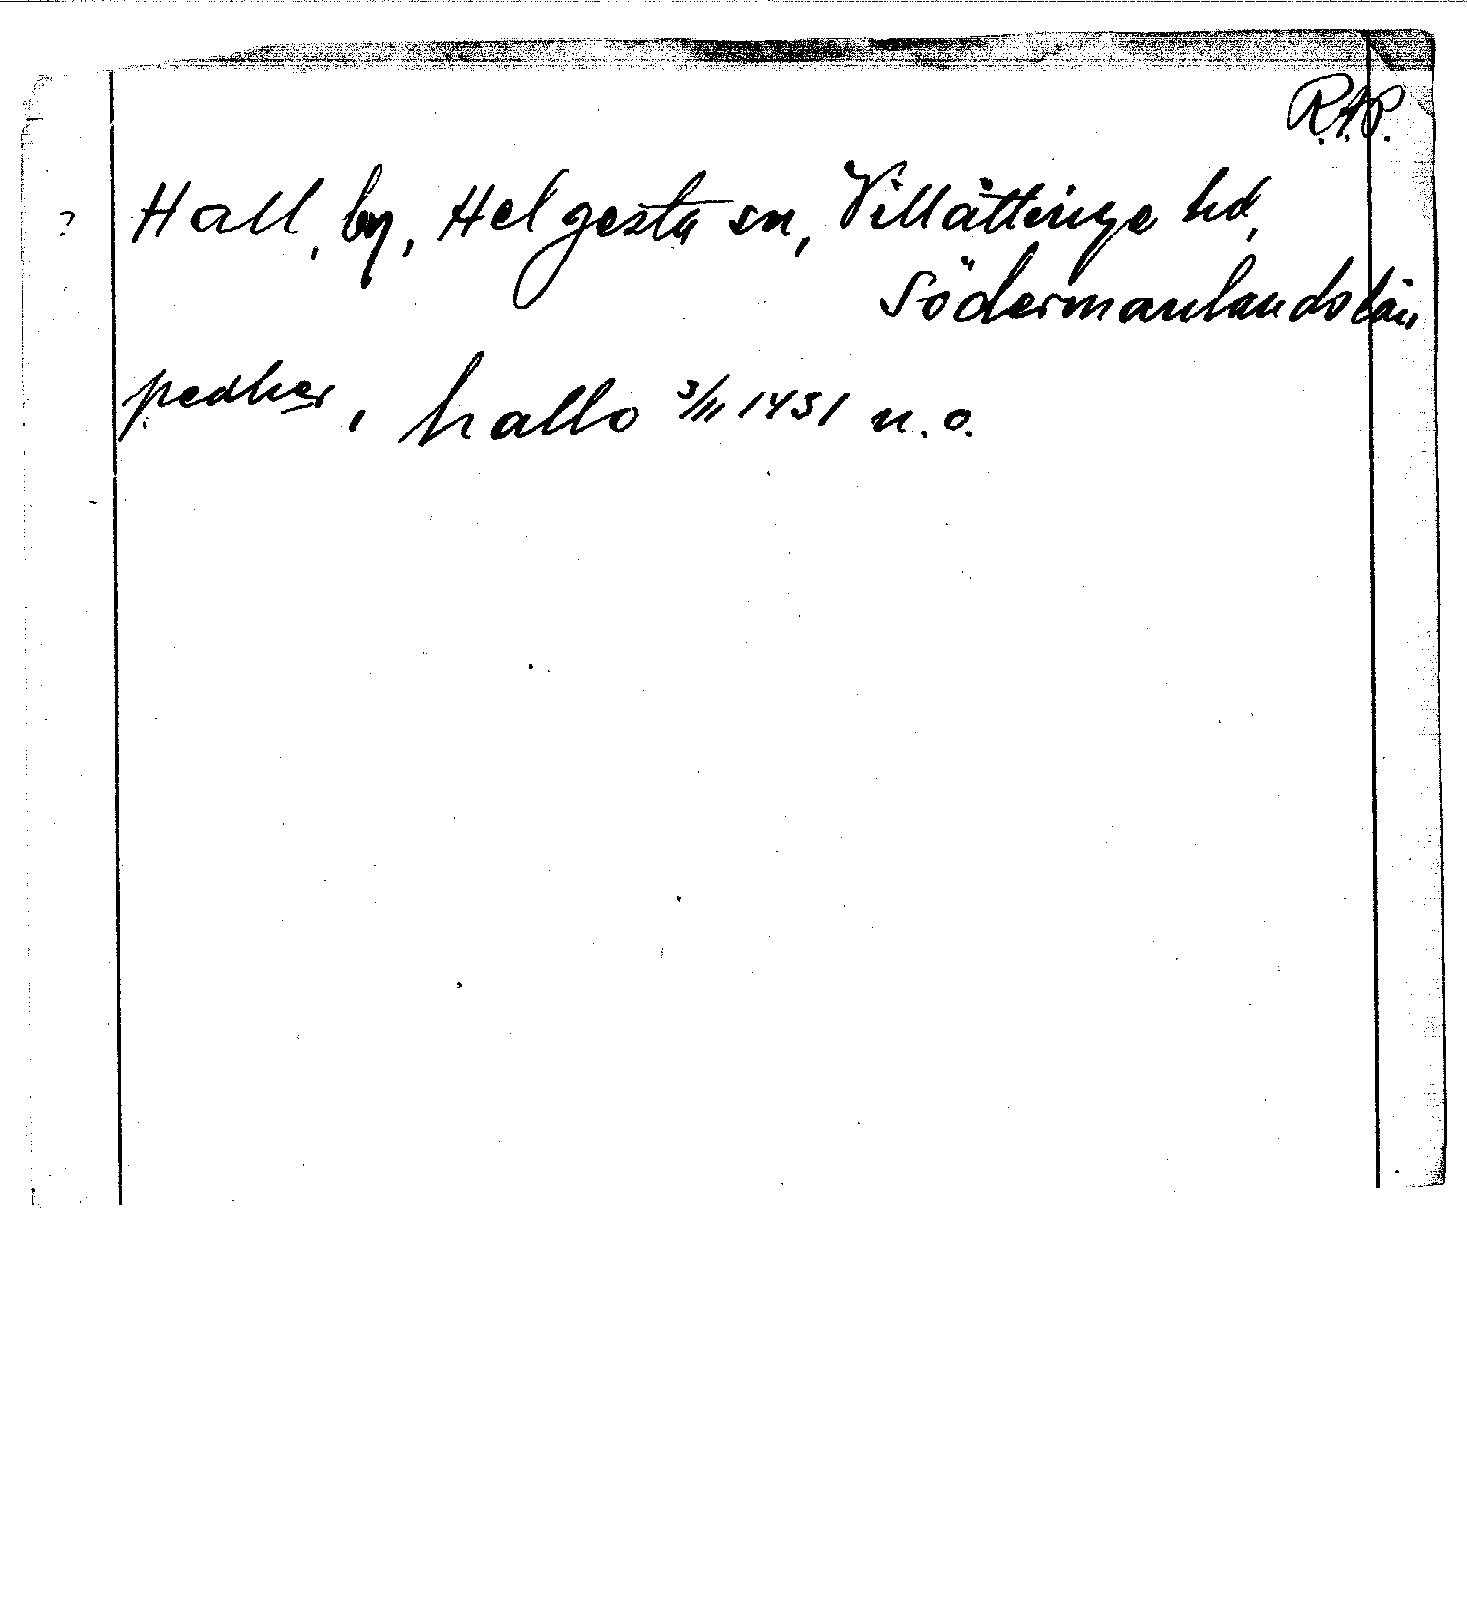 R.A.P.
? Hall, by, Helgesta sn, Villåttinge hd,
Södermanlands län
pedher, hallo 3/III 1451 n.o.